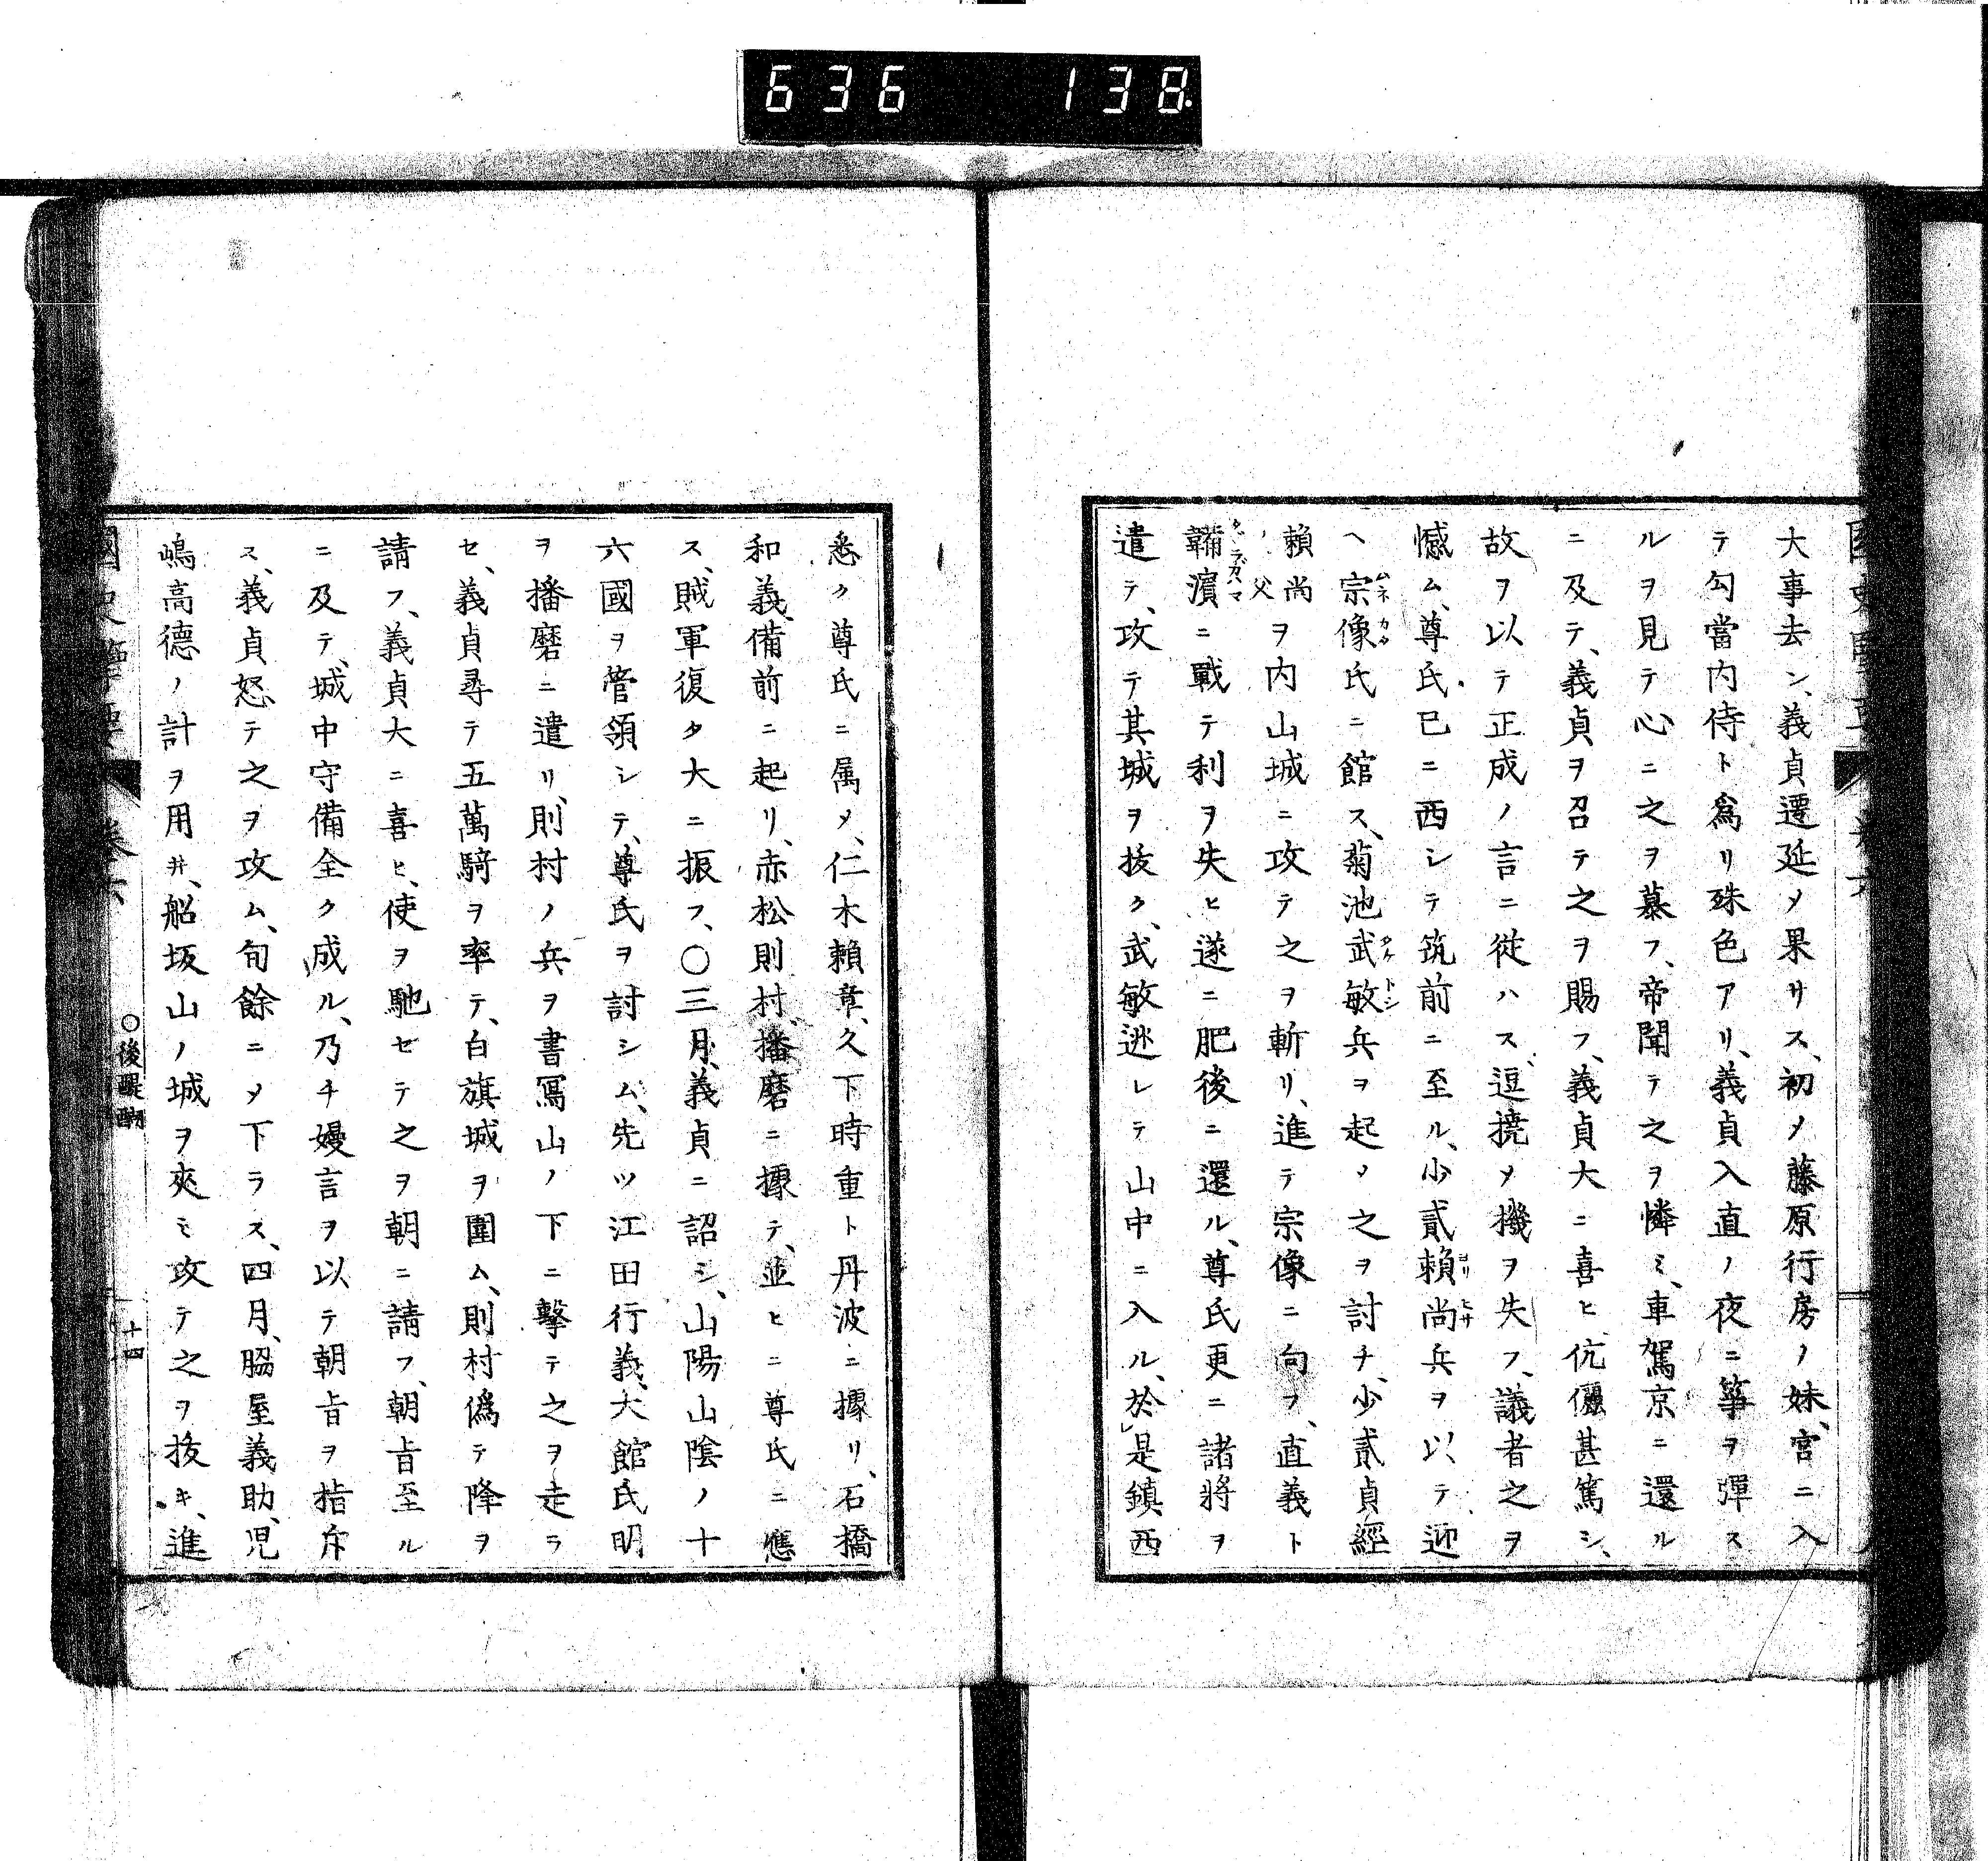 636 138
大事去ン、義貞遷延メ果サス、初メ藤原行房ノ妹、宮ニ入
テ勾當内侍ト為リ殊色アリ、義貞入直ノ夜ニ箏ヲ彈ス
ルヲ見テ心ニ之ヲ慕フ、帝聞テ之ヲ憐ミ、車駕京ニ還ル
ニ及テ、義貞ヲ召テ之ヲ賜フ、義貞大ニ喜ヒ伉儷甚篤シ、
故ヲ以テ正成ノ言ニ從ハス、逗撓メ機ヲ失フ、議者之ヲ
憾ム、尊氏已ニ西シテ筑前ニ至ル、少貳賴尚兵ヲ以テ迎
ヘ宗像氏ニ館ス、菊池武敏兵ヲ起メ之ヲ討チ、少貳貞經
賴尚ノ父ヲ内山城ニ攻テ之ヲ斬リ、進テ宗像ニ向フ、直義ト
鞴濵ニ戰テ利ヲ失ヒ遂ニ肥後ニ還ル、尊氏更ニ諸將ヲ
遣テ、攻テ其城ヲ抜ク、武敏逃レテ山中ニ入ル、於是鎮西
悉ク尊氏ニ属メ、仁木賴章、久下時重ト丹波ニ據リ、石橋
和義、備前ニ起リ、赤松則村、播磨ニ據テ、並ヒニ尊氏ニ應
ス、賊軍復タ大ニ振フ、〇三月、義貞ニ詔シ、山陽山陰ノ十
六國ヲ管領シテ、尊氏ヲ討シム、先ツ江田行義、大館氏明
ヲ播磨ニ遣リ、則村ノ兵ヲ書寫山ノ下ニ擊テ之ヲ走ラ
セ、義貞尋テ五萬騎ヲ率テ、白旗城ヲ圍ム、則村偽テ降ヲ
請フ、義貞大ニ喜ヒ、使ヲ馳セテ之ヲ朝ニ請フ、朝旨至ル
ニ及テ、城中守備全ク成ル、乃チ嫚言ヲ以テ朝旨ヲ指斥
ス、義貞怒テ之ヲ攻ム、旬餘ニメ下ラス、四月、脇屋義助、児
嶋高德ノ計ヲ用井、船坂山ノ城ヲ夾ミ攻テ之ヲ抜キ、進
卷六
〇後醍醐
十四